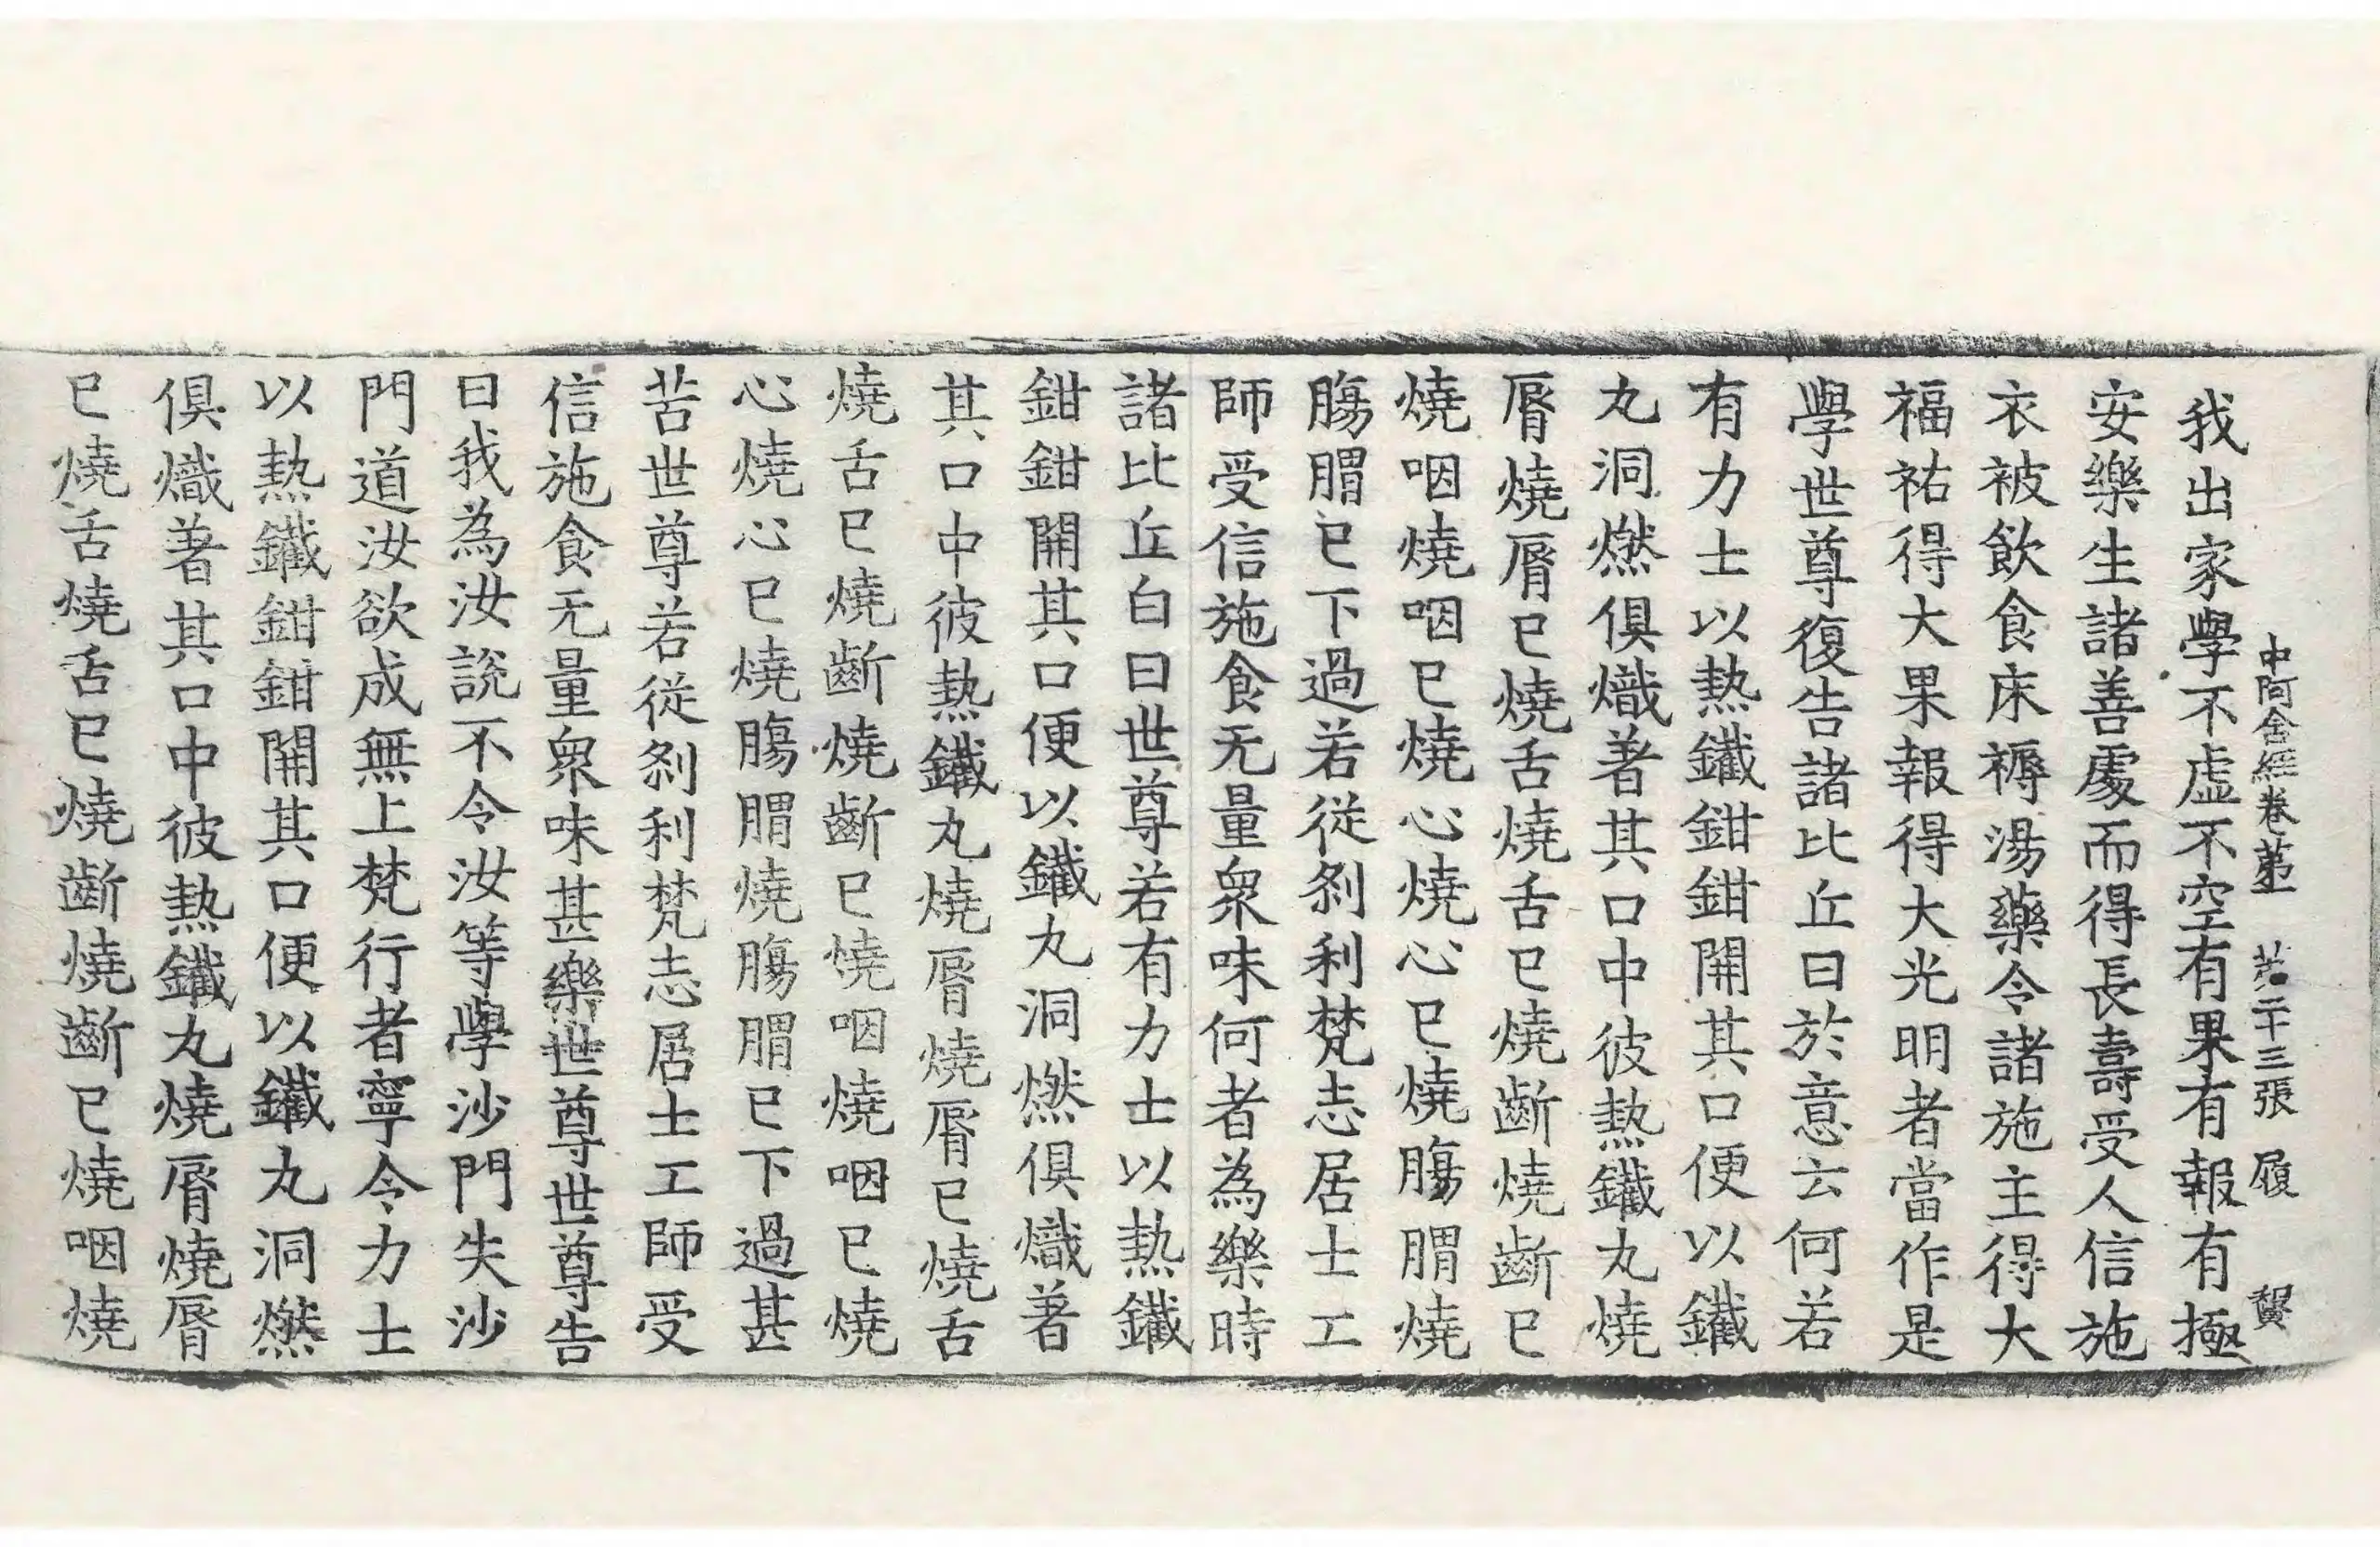 中阿含經卷苐一 苐二十三張 履 賢
我出家學不虛不空有果有報有極
安樂生諸善處而得長壽受人信施
衣被飲食床褥湯藥令諸施主得大
福祐得大果報得大光明者當作是
學世尊復告諸比丘曰於意云何若
有力士以熱鐵鉗鉗開其口便以鐵
丸洞燃俱熾著其口中彼熱鐵丸燒
脣燒脣已燒舌燒舌已燒齗燒齗已
燒咽燒咽已燒心燒心已燒腸胃燒
腸胃已下過若從剎利梵志居士工
師受信施食无量衆味何者為樂時
諸比丘白曰世尊若有力士以熱鐵
鉗鉗開其口便以鐵丸洞燃俱熾著
其口中彼熱鐵丸燒脣燒脣已燒舌
燒舌已燒齗燒齗已燒咽燒咽已燒
心燒心已燒腸胃燒腸胃已下過甚
苦世尊若從剎利梵志居士工師受
信施食无量衆味甚樂世尊世尊告
曰我為汝說不令汝等學沙門失沙
門道汝欲成無上梵行者寧令力士
以熱鐵鉗鉗開其口便以鐵丸洞燃
俱熾著其口中彼熱鐵丸燒脣燒脣
已燒舌燒舌已燒齗燒齗已燒咽燒